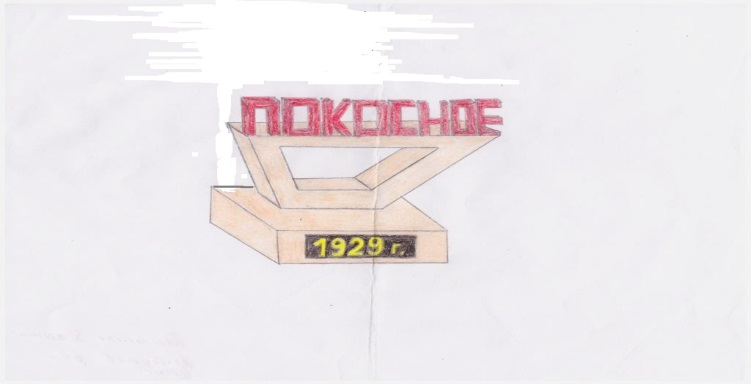 ПОКОСНОЕ
1929 г.